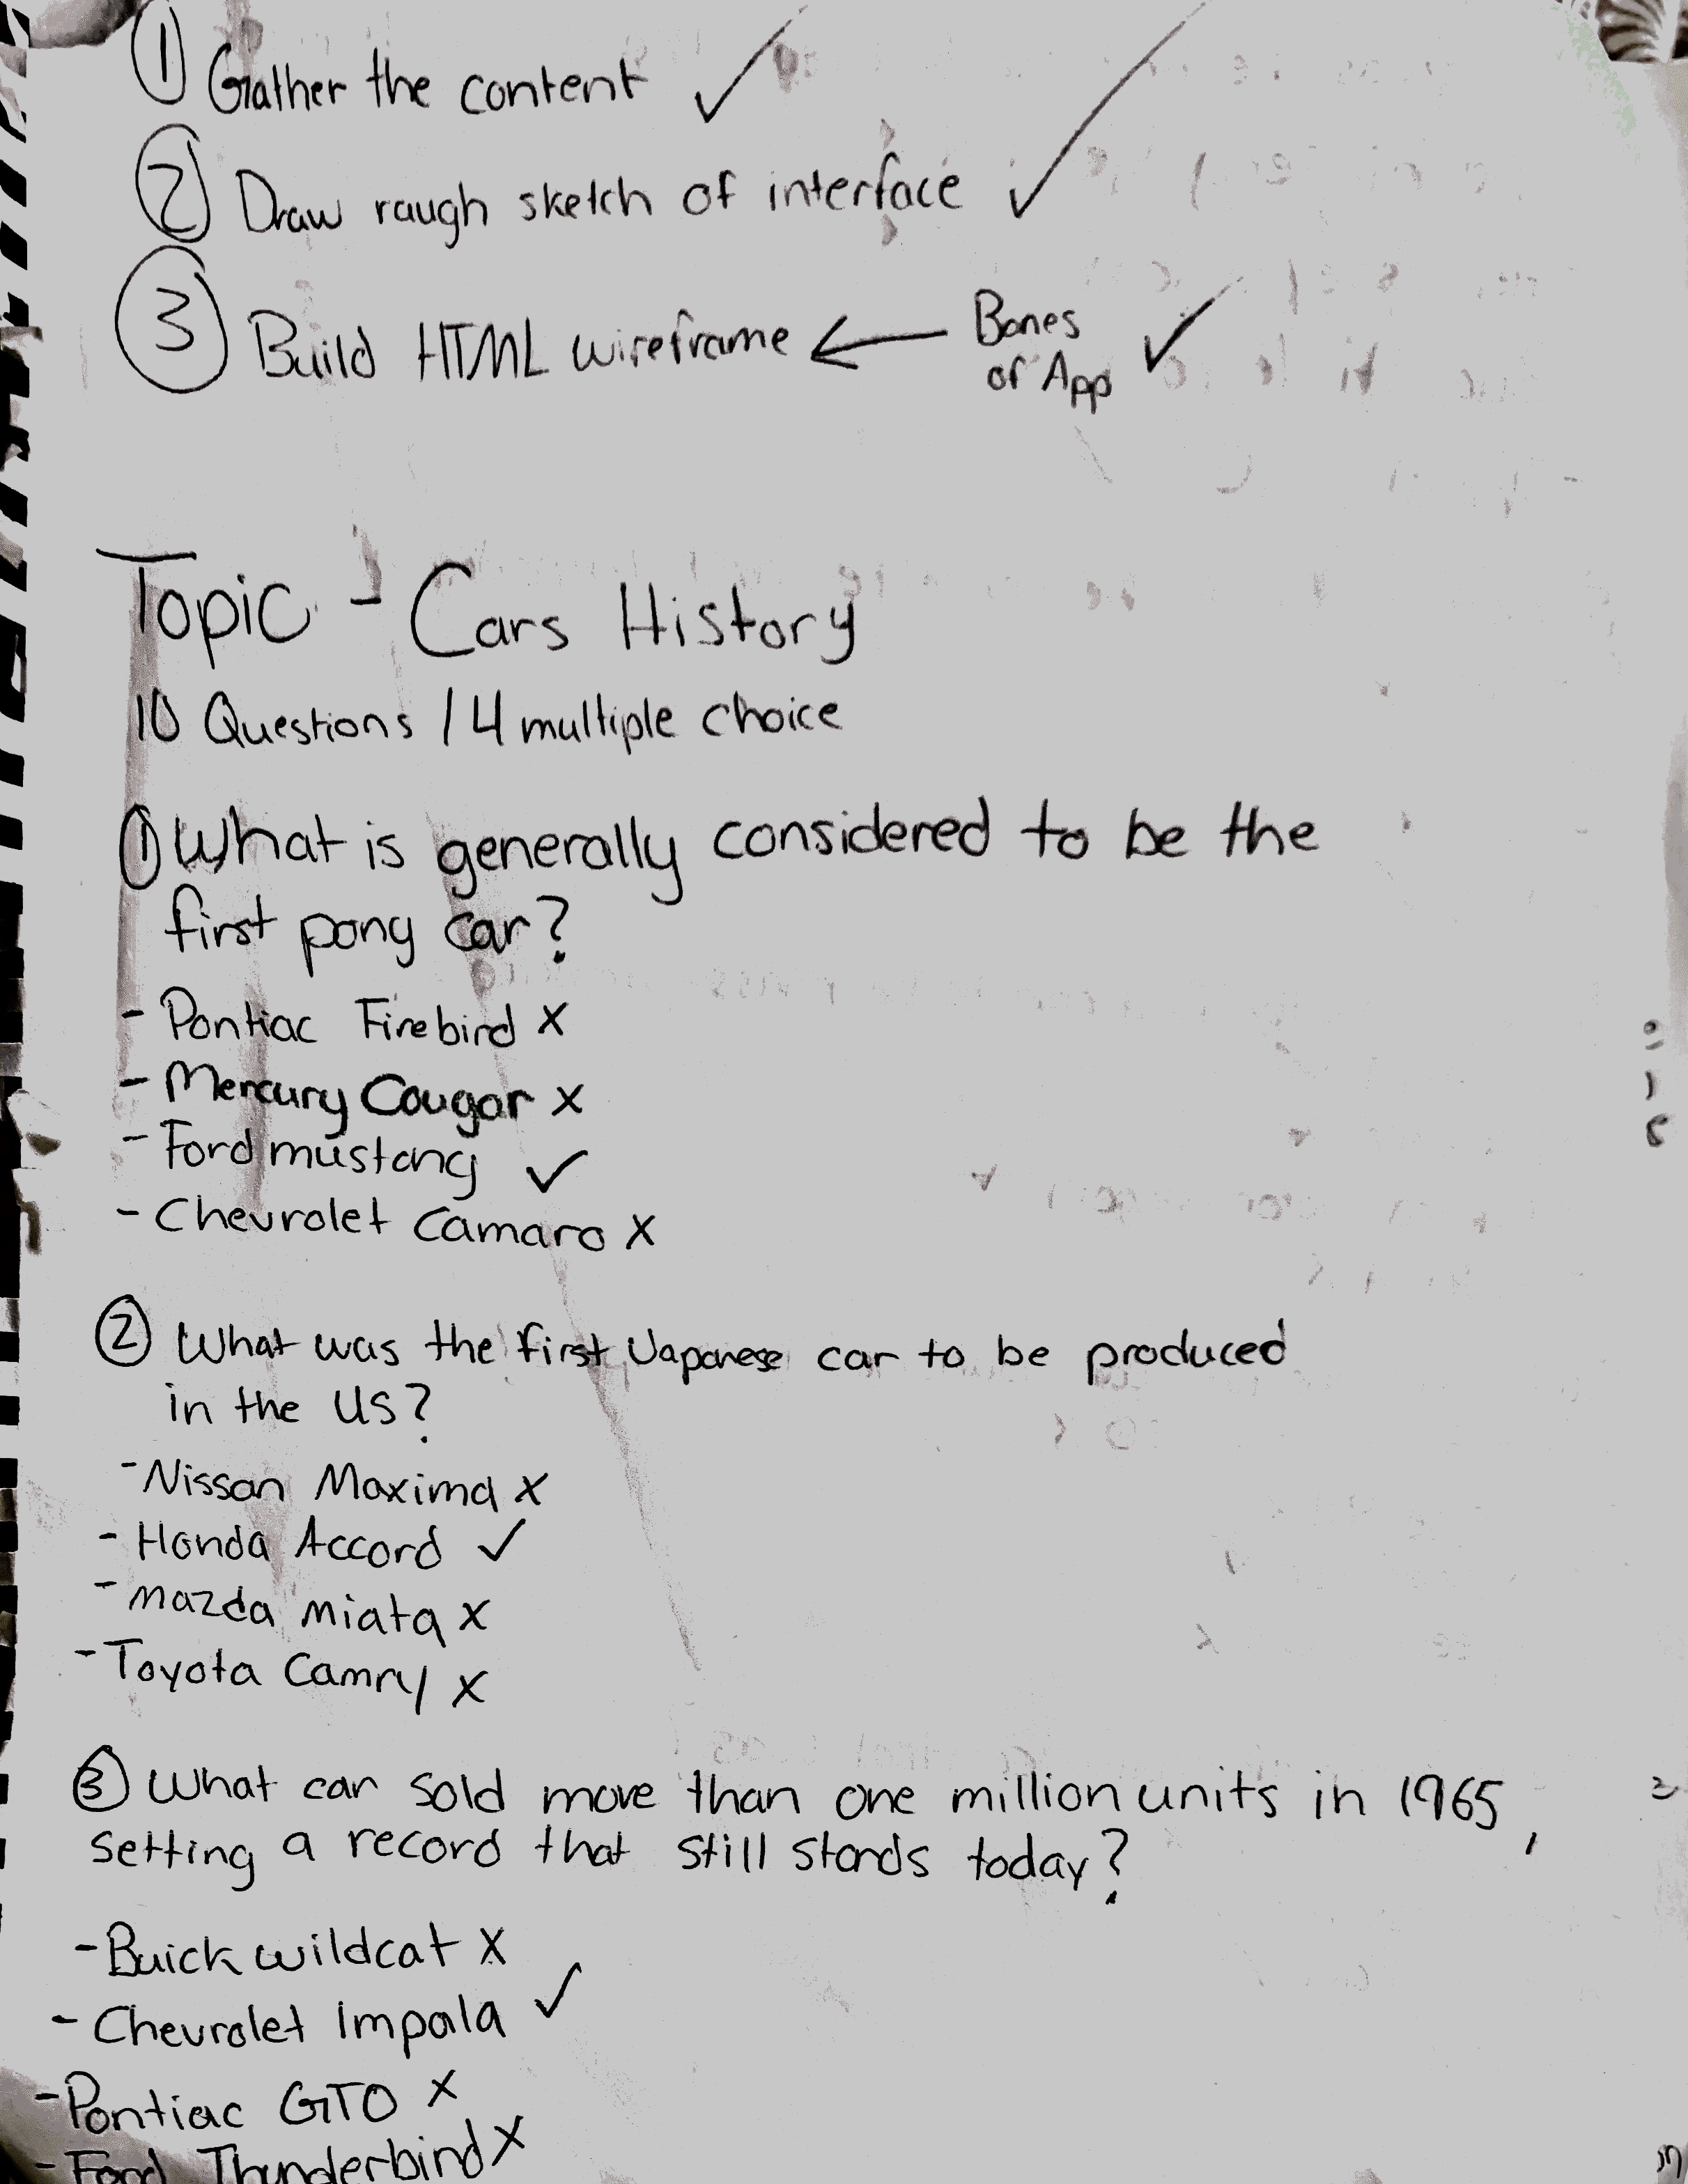 ① Gather the content ✓
② Draw rough sketch of interface ✓
③ Build HTML wireframe ← Bones
of App ✓
Topic - Cars History
10 Questions / 4 multiple choice
① What is generally considered to be the
first pony car?
- Pontiac Firebird X
- Mercury Cougar X
- Ford mustang ✓
- Chevrolet Camaro X
② What was the first Japanese car to be produced
in the US?
- Nissan Maxima X
- Honda Accord ✓
- mazda miata X
- Toyota Camry X
③ What car sold more than one million units in 1965,
setting a record that still stands today?
- Buick wildcat X
- Chevrolet Impala ✓
- Pontiac GTO X
- Ford Thunderbird X